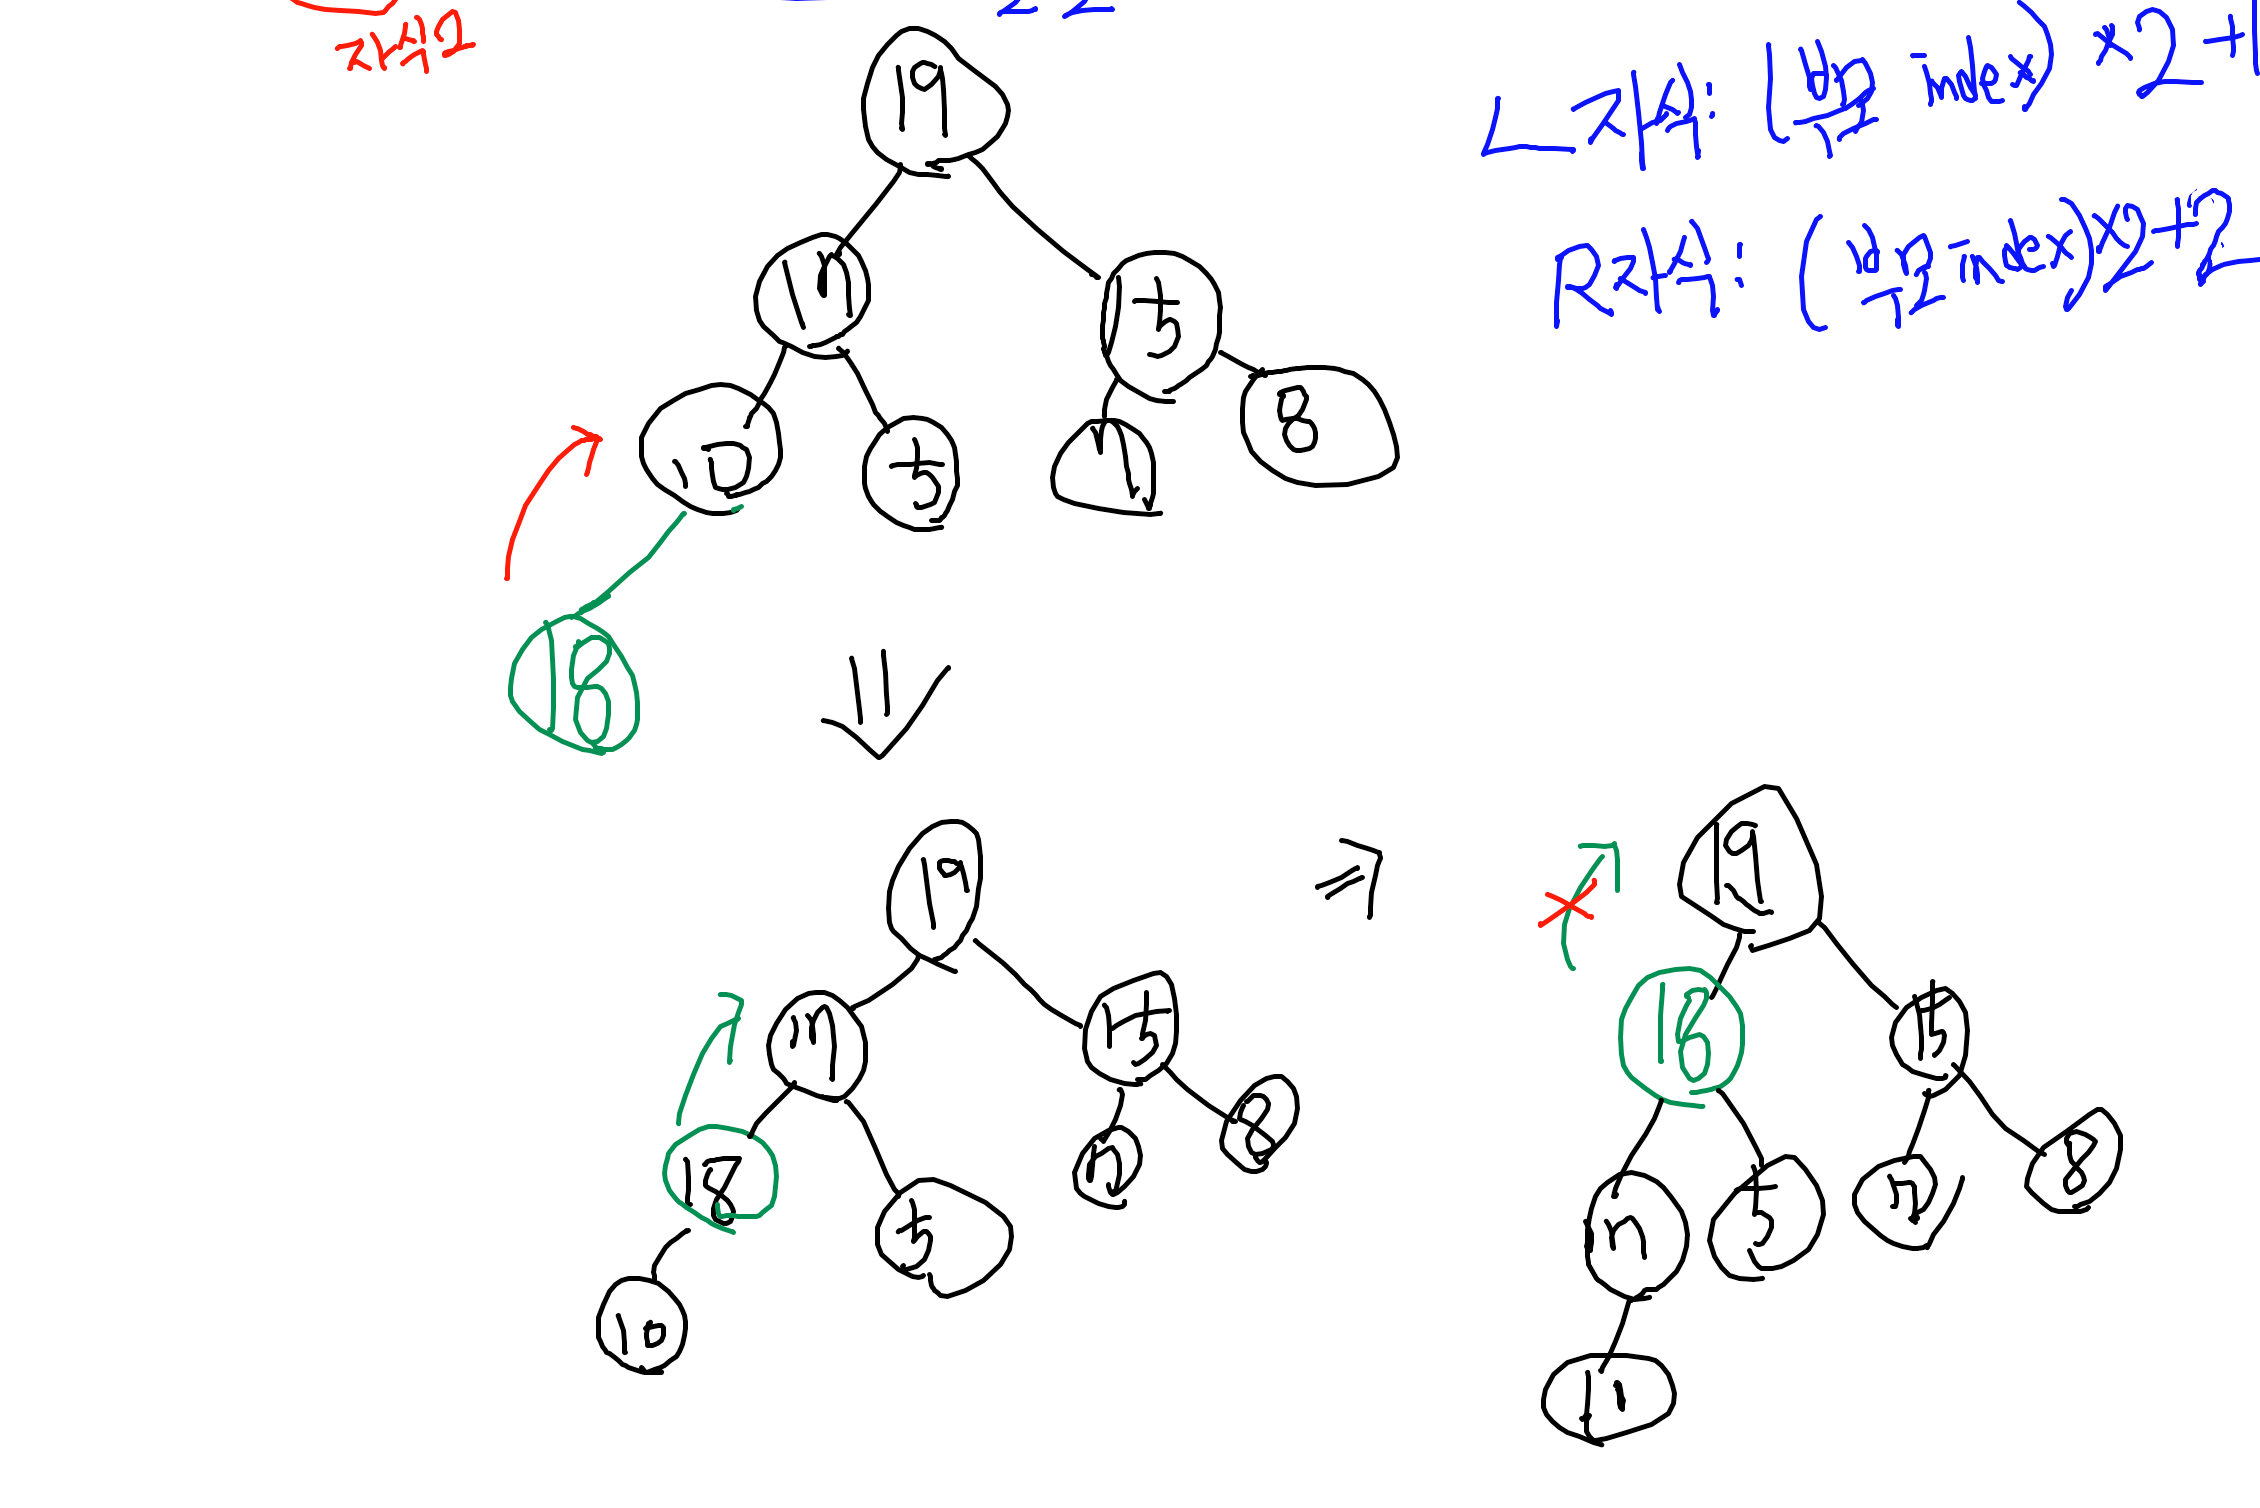 자식2
19
L자식: (부모 index) ×2 +1
R자식: (부모 index) ×2 +2
17
15
10
5
7
8
18
19
17
15
18
5
7
8
10
19
18
15
17
5
7
8